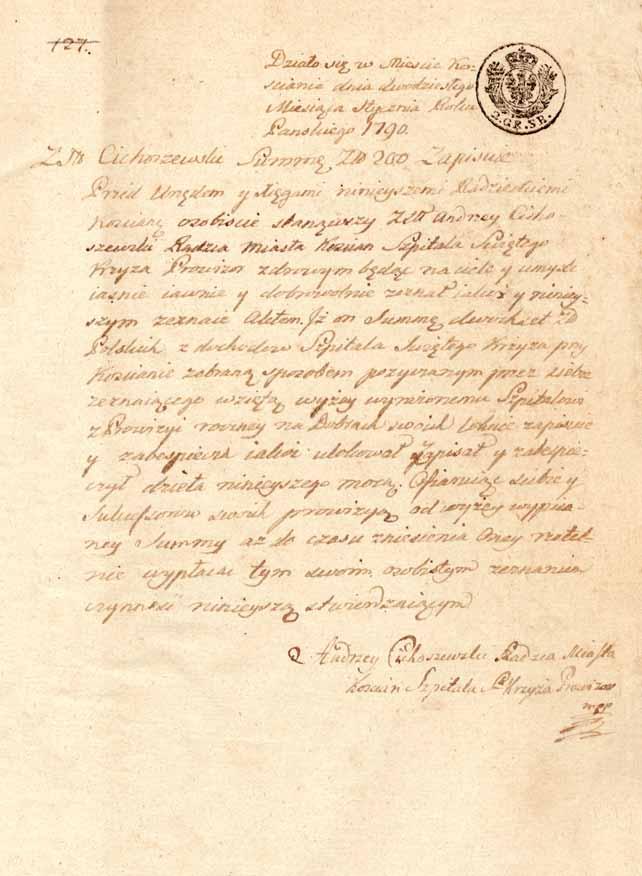 127.
Działo się w Mieście Koś-
cianie dnia dwudziestego
Miesiąca Stycznia Roku
Panskiego 1790.
2.GR.SR.
Cichoszewski Summę 200 Zapisuie
Przed Urzędem y Xięgami ninieyszemi Radzieckiemi
osobiscie stanąwszy Andrzey Cicho-
szewski Radzca Miasta Kościan Szpitala Swiętego
Krzyża Prowizor zdrowym będąc na ciele y umysle
iasnie iawnie y dobrowolnie zeznał iakoż y niniey-
szym zeznaie Aktem. Iż on Summę dwóch set
Polskich z dochodow Szpitala Swiętego Krzyża przy
Kościanie zebraną sposobem pozyczanym przez siebie
zeznaiącego wziętą wyżey wyrażonemu Szpitalowi
z Prowizyi roczney na Dobrach swoich zapisuie
y zabespiecza iakoż ulokował Zapisał y zabespie-
czył dzieła ninieyszego mocą. Ofiaruiąc siebie y
Sukcessorow swoich prowizyą od wyżey wypisa-
ney Summy aż do czasu zniesienia Oney rzetel-
nie wypłacać tym swoim osobistym zeznaniem
czynność ninieyszą stwierdzaiącym
Andrzey Cichoszewski Radzca Miasta
Kościan Szpitala S Krzyża Prowizor
mpp